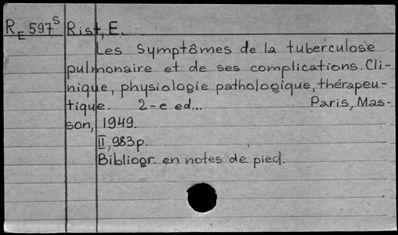 RE 597s Rist, E.
Les Symptômes de la tuberculose
pulmonaire et de ses complications. Cli-
nique, physiologie pathologique, thérapeu-
tique. 2-e ed... Paris, Mas-
son, 1949.
II, 983p.
Bibliogr. en notes de pied.